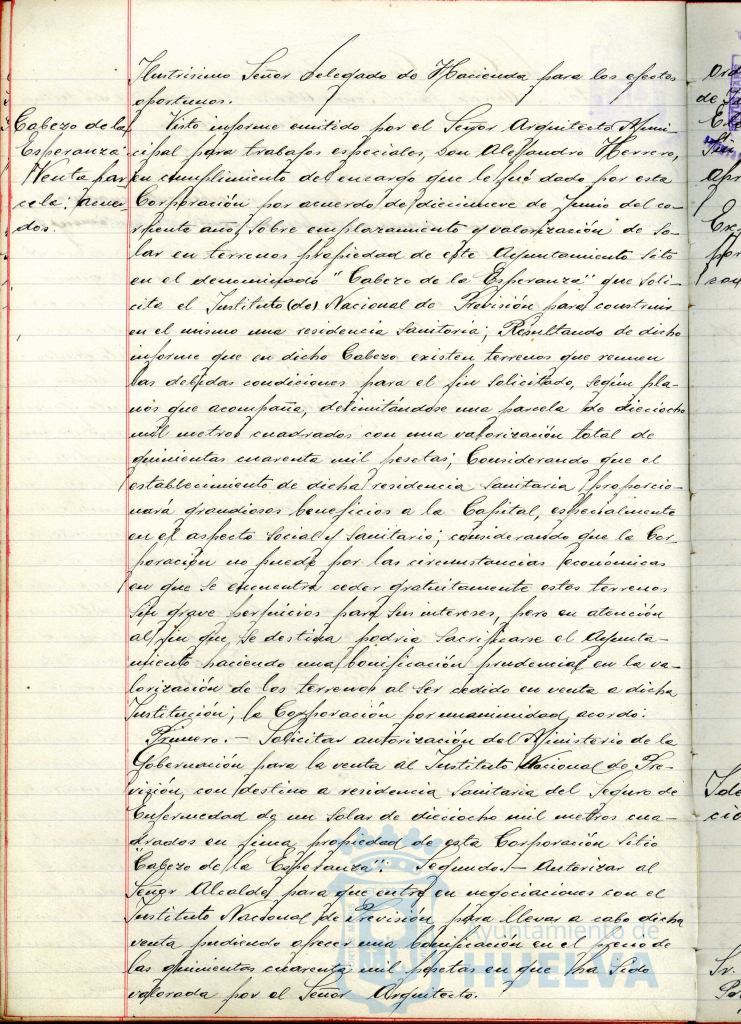 Ilustrisimo Señor Delegado de Hacienda para los efectos
oportunos.
Cabezo de la
Esperanza
Venta par-
cela: acuer-
dos.
Visto informe emitido por el Señor Arquitecto Muni-
cipal para trabajos especiales, Don Alejandro Herrero,
en cumplimiento del encargo que le fué dado por esta
Corporación por acuerdo de diecinueve de Junio del co-
rriente año, sobre emplazamiento y valorización de so-
lar en terrenos propiedad de este Ayuntamiento sito
en el denominado "Cabezo de la Esperanza" que soli-
cita el Instituto (de) Nacional de Previsión para construir
en el mismo una residencia sanitaria; Resultando de dicho
informe que en dicho Cabezo existen terrenos que reunen
las debidas condiciones para el fin solicitado, según pla-
nos que acompaña, delimitándose una parcela de dieciocho
mil metros cuadrados con una valorización total de
quinientas cuarenta mil pesetas; Considerando que el
establecimiento de dicha residencia sanitaria proporcio-
nará grandiosos beneficios a la Capital, especialmente
en el aspecto social y sanitario; considerando que la Cor-
poración no puede por las circunstancias económicas
en que se encuentra ceder gratuitamente estos terrenos
sin grave perjuicios para sus intereses, pero en atención
al fin que se destina podria sacrificarse el Ayunta-
miento haciendo una bonificación prudencial en la va-
lorización de los terrenos al ser cedido en venta a dicha
Institución; la Corporación por unanimidad acordo:
Primero.- Solicitar autorización del Ministerio de la
Gobernación para la venta al Instituto Nacional de Pre-
visión, con destino a residencia sanitaria del Seguro de
Enfermedad de un solar de dieciocho mil metros cua-
drados en finca propiedad de esta Corporación sitio
"Cabezo de la Esperanza". Segundo.- Autorizar al
Señor Alcalde para que entre en negociaciones con el
Instituto Nacional de Previsión para llevar a cabo dicha
venta pudiendo ofrecer una bonificación en el precio de
las quinientas cuarenta mil pesetas en que ha sido
valorada por el Señor Arquitecto.
Ayuntamiento de
HUELVA